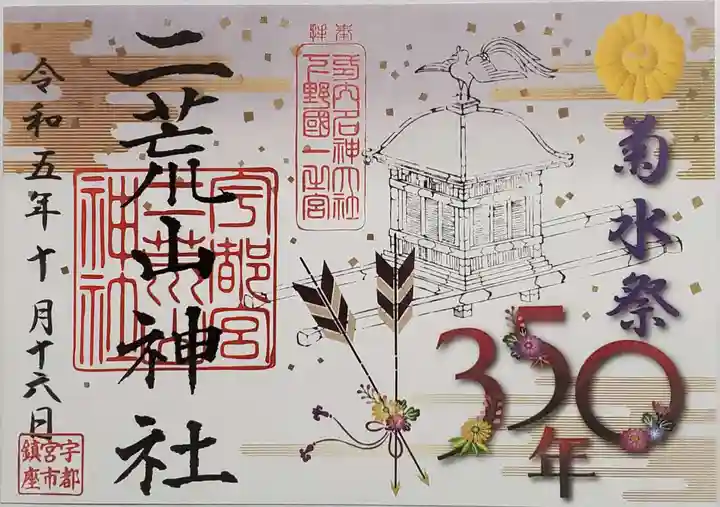 菊水祭
350
年
奉拝
式内名神大社
下野國一之宮
二荒山神社
宇都宮
二荒山
神社
令和五年十月十六日
宇都
宮市
鎮座